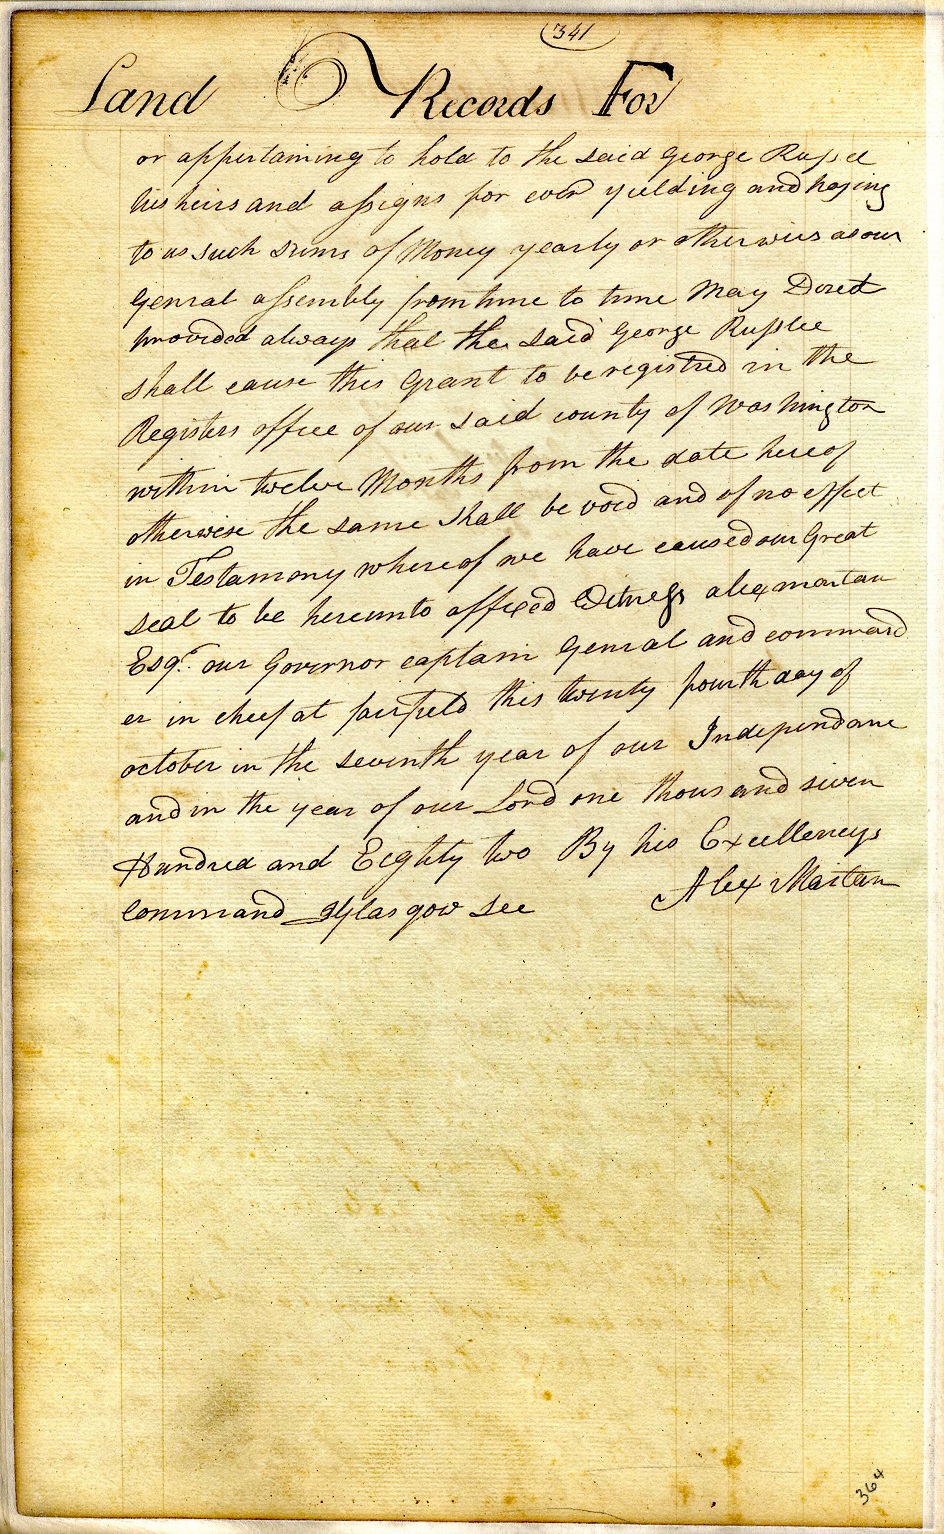 341
Land Records For
or appertaining to hold to the said George Russel
his heirs and assigns for ever yeilding and paying
to us such sums of Money yearly or otherwies as our
Genral assembly from time to time May Direct
provided always that the said George Russlee
shall cause this Grant to be registred in the
Registers office of our said county of Washington
within twelve Months from the date hereof
otherwise the same shall be void and of no effect
in Testamony whereof we have caused our Great
seal to be hereunto affixed Witness alex martan
Esqr. our Governor captain Genral and command
er in cheef at fairfield this twenty fourth day of
october in the seventh year of our Independance
and in the year of our Lord one thousand seven
Hundred and Eighty two By his Excellencys
Command JGlasgow See Alex Martan
364